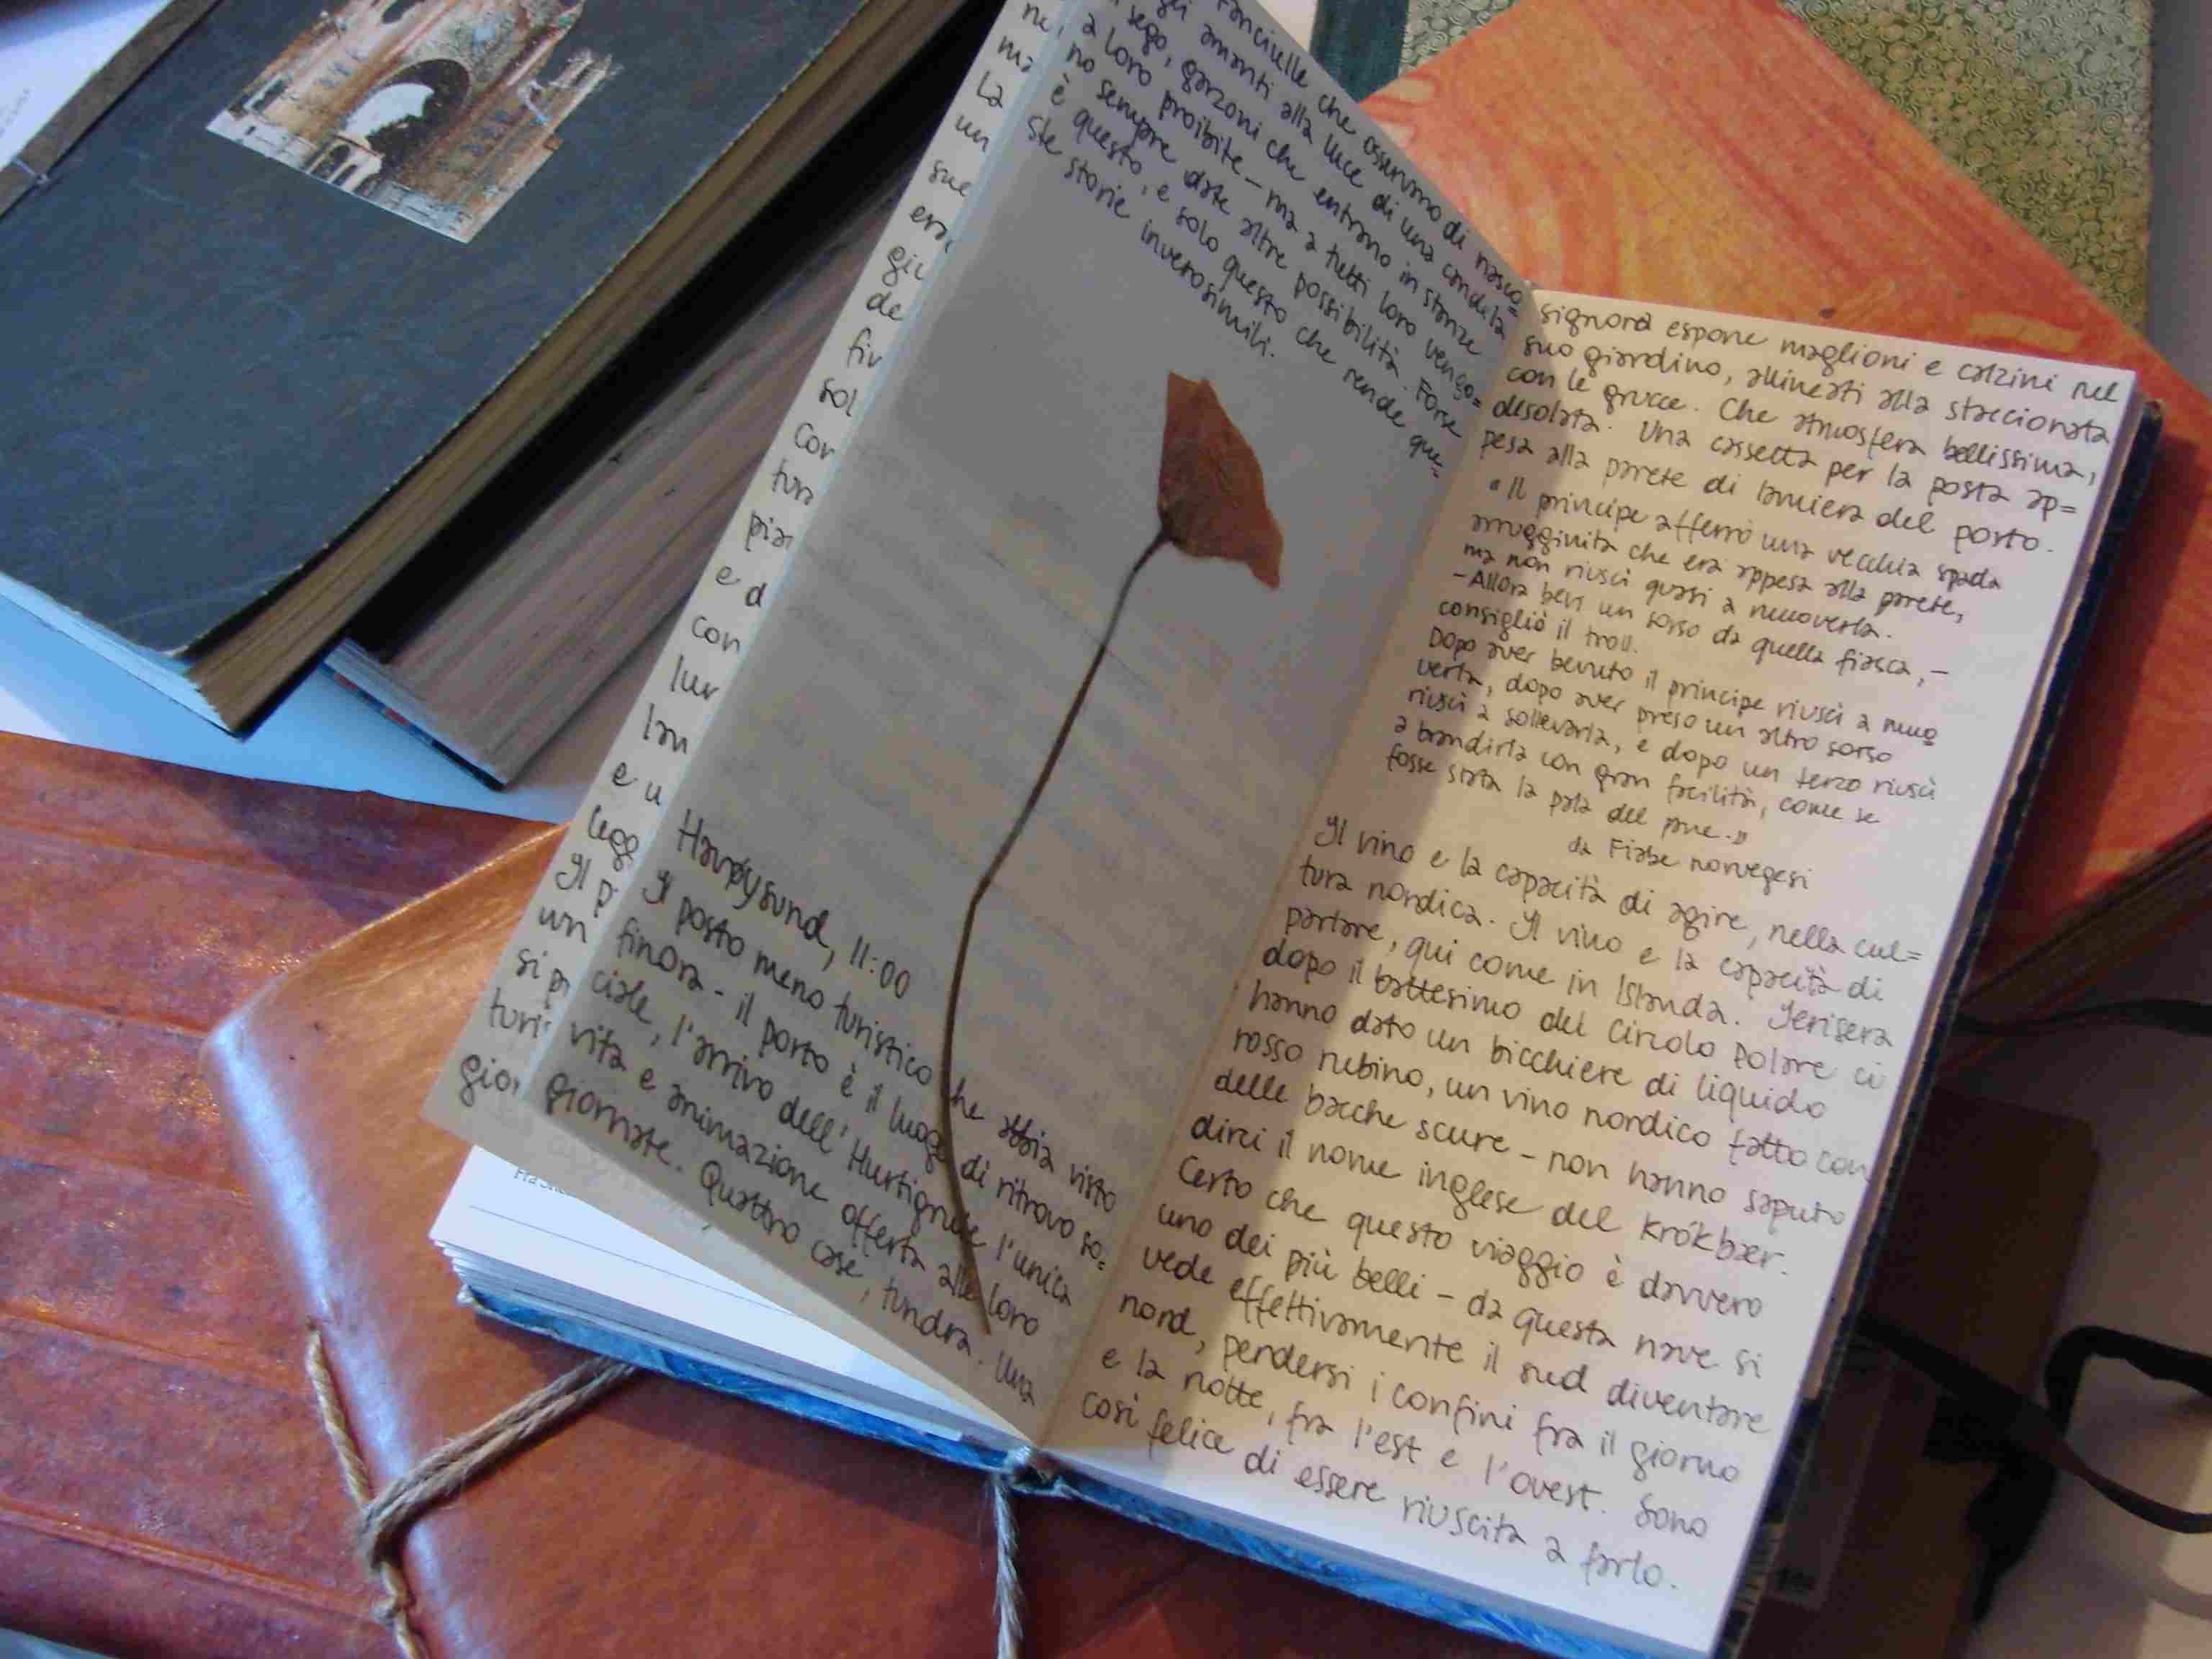 fanciulle che osservano di nasco=
amanti alla luce di una candela
sego, garzoni che entrano in stanze
a loro proibite - ma a tutti loro vengo=
no sempre date altre possibilità. Forse
è questo, e solo questo che rende que=
ste storie inverosimili.
Havøysund, 11:00
Il posto meno turistico che abbia visto
finora - il porto è il luogo di ritrovo so=
ciale, l'arrivo dell'Hurtigrute l'unica
vita e animazione offerta alle loro
giornate. Quattro case, tundra. Una
signora espone maglioni e calzini nel
suo giardino, allineati alla staccionata
con le grucce. Che atmosfera bellissima,
desolata. Una cassetta per la posta ap=
pesa alla parete di lamiera del porto.
"Il principe afferrò una vecchia spada
arrugginita che era appesa alla parete,
ma non riuscì quasi a muoverla.
-Allora bevi un sorso da quella fiasca,-
consigliò il troll.
Dopo aver bevuto il principe riuscì a muo
verla, dopo aver preso un altro sorso
riuscì a sollevarla, e dopo un terzo riuscì
a brandirla con gran facilità, come se
fosse stata la pala del pane."
da Fiabe norvegesi
Il vino e la capacità di agire, nella cul=
tura nordica. Il vino e la capacità di
parlare, qui come in Islanda. Ierisera
dopo il battesimo del Circolo Polare ci
hanno dato un bicchiere di liquido
rosso rubino, un vino nordico fatto con
delle bacche scure - non hanno saputo
dirci il nome inglese del krókbær.
Certo che questo viaggio è davvero
uno dei più belli - da questa nave si
vede effettivamente il sud diventare
nord, pendersi i confini fra il giorno
e la notte, fra l'est e l'ovest. Sono
così felice di essere riuscita a farlo.